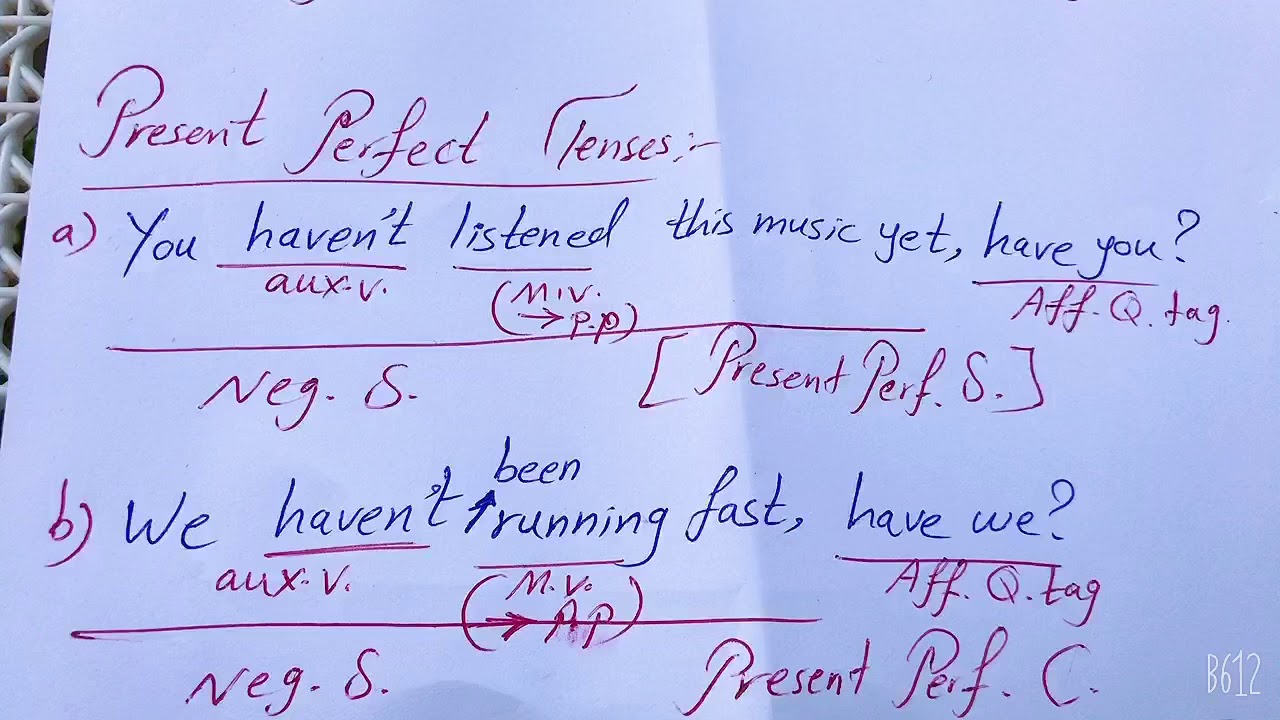 Present Perfect Tenses:-
a) You haven't listened this music yet, have you?
aux.v. (M.v. → p.p) Aff. Q. tag.
Neg. S. [Present Perf. S.]
been
b) We haven't running fast, have we?
aux.v. (M.v. → p.p) Aff. Q. tag
Neg. S. Present Perf. C.
B612